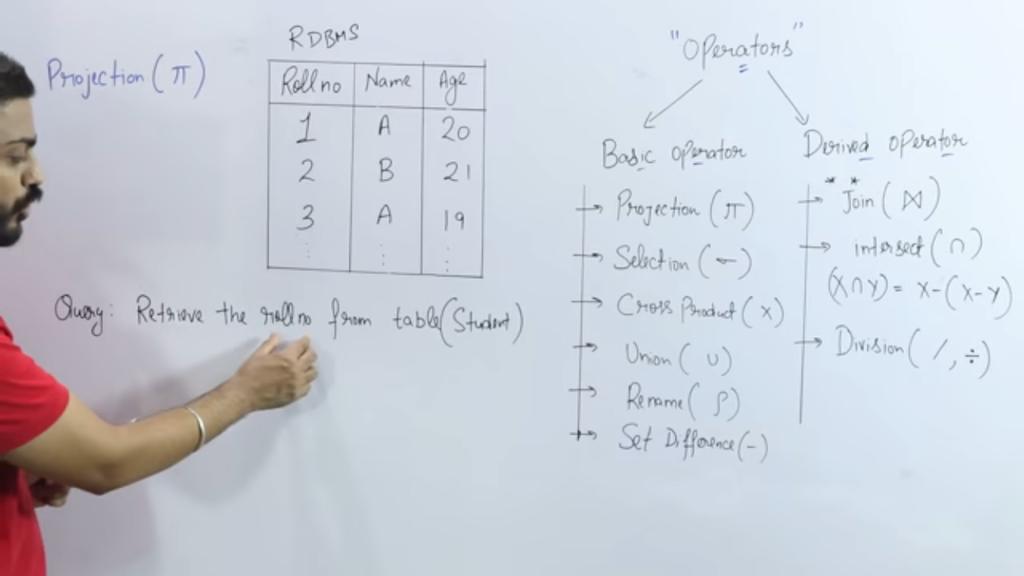 Projection (π)
RDBMS
Roll no Name Age
1 A 20
2 B 21
3 A 19
Query: Retrieve the rollno from table (Student)
"Operators"
Basic operator
Projection (π)
Selection (σ)
Cross Product (X)
Union (∪)
Rename (ρ)
Set Difference (-)
Derived operator
** Join (⋈)
intersect (∩)
(X∩Y) = X-(X-Y)
Division (/, ÷)